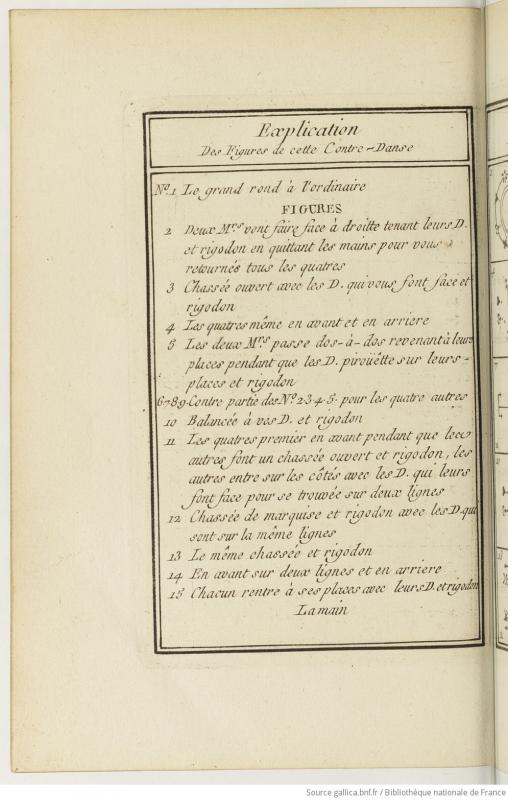 Explication
Des Figures de cette Contre-Danse
No. 1 Le grand rond à l'ordinaire
FIGURES
2 Deux Mrs vont faire face à droitte tenant leurs D.
et rigodon en quittant les mains pour vous
retournés tous les quatres
3 Chassée ouvert avec les D. qui vous font face et
rigodon
4 Les quatres même en avant et en arriere
5 Les deux Mrs passe dos-à-dos revenant à leurs
places pendant que les D. piroüëtte sur leurs
places et rigodon
6 7 8 9 Contre partie des No. 2 3 4 5. pour les quatre autres
10 Balancée à vos D. et rigodon
11 Les quatres premier en avant pendant que les
autres font un chassée ouvert et rigodon, les
autres entre sur les côtés avec les D. qui leurs
font face pour se trouvée sur deux lignes
12 Chassée de marquise et rigodon avec les D. qui
sont sur la même lignes
13 Le même chassée et rigodon
14 En avant sur deux lignes et en arriere
15 Chacun rentre à ses places avec leurs D. et rigodon
La main
Source gallica.bnf.fr / Bibliothèque nationale de France